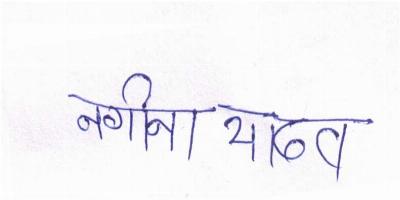 नगीना यादव